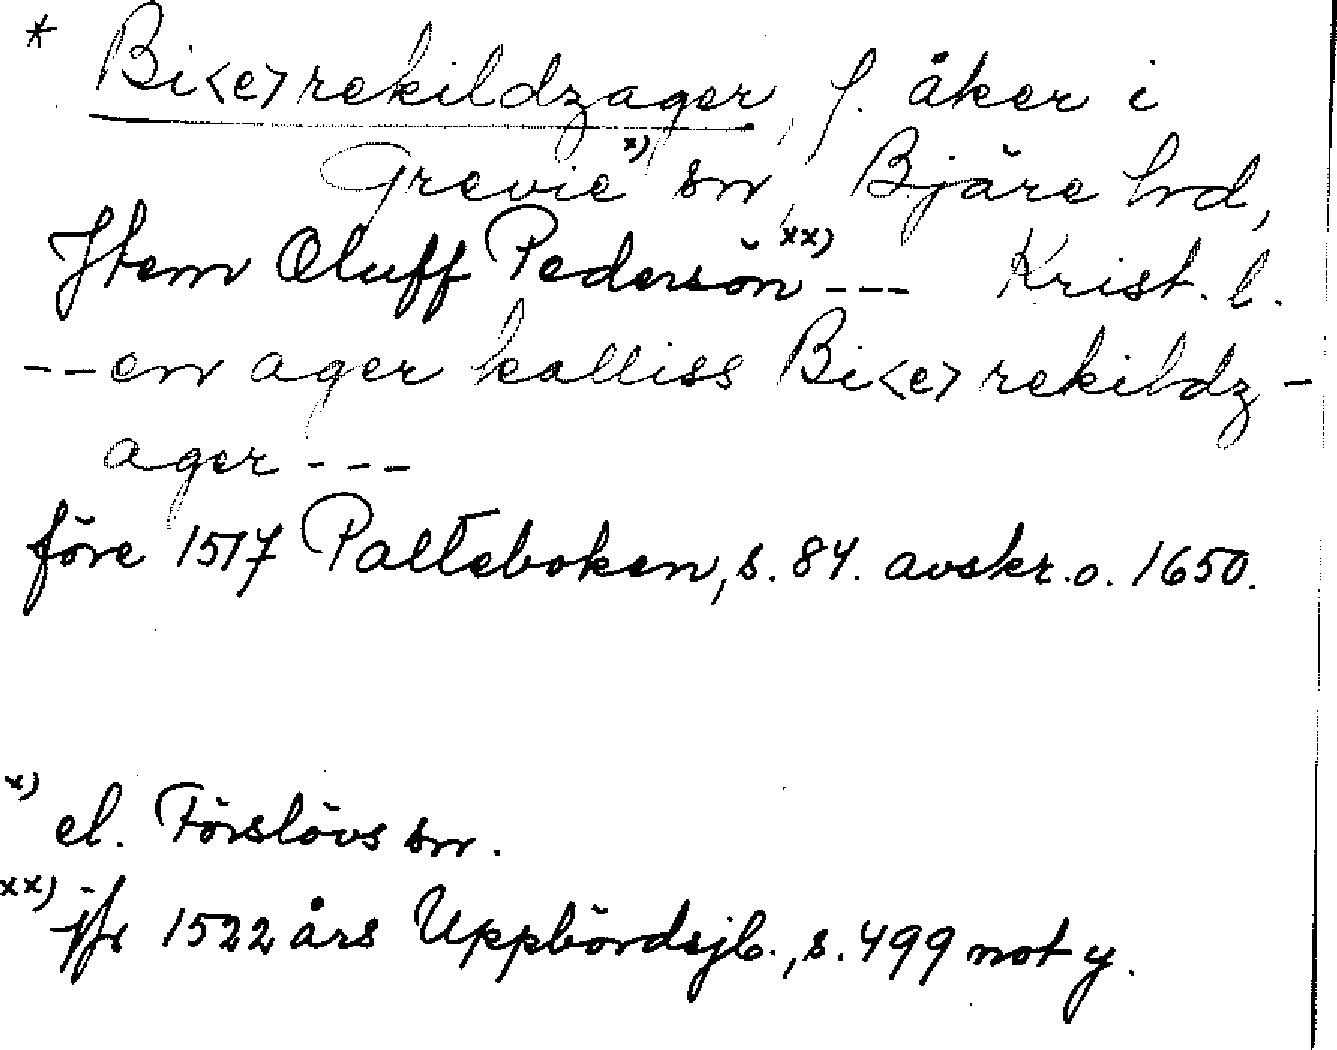 * Bi<e>rekildzager, f. åker i
Grevie x) sn, Bjäre hd,
Jtem Oluff Pedersön xx) --- Krist. l.
--en ager kalliss Bi<e>rekildz-
ager ---
före 1517 Palteboken, s. 84. avskr. o. 1650.
x) el. Förslövs sn.
xx) jfr 1522 års Uppbördsjb., s. 499 not y.